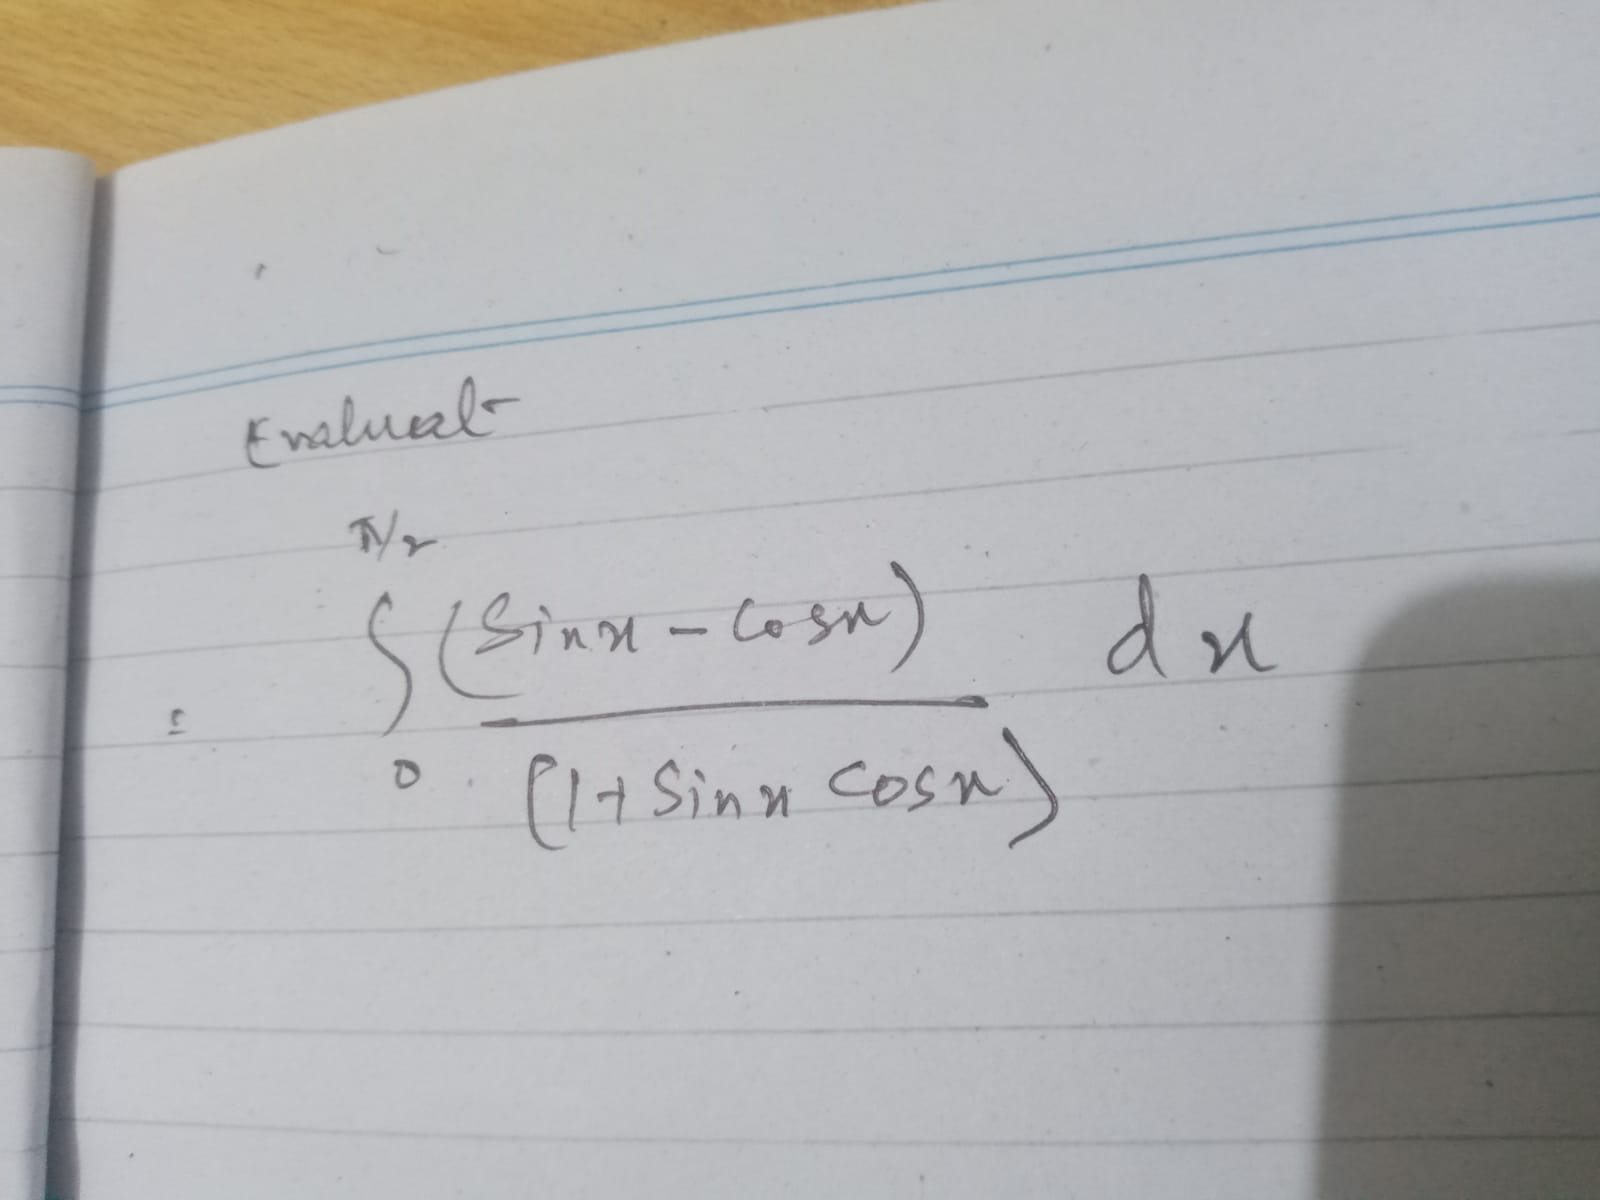 Evaluate
π/2
= ∫ (Sinx - Cosx) dx
0 (1+ Sinx Cosx)